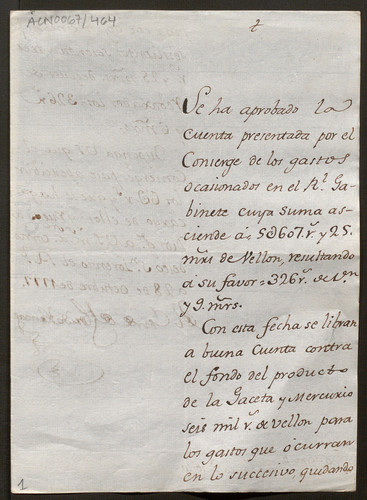 ACN0067/464
Se ha aprobado la
cuenta presentada por el
Conserge de los gastos
ocasionados en el Rl. Ga-
binete cuya suma as-
ciende á 5607 rs. y 25
mrs de Vellon, resultando
á su favor 326 rs. de Von
y 9. mrs.
Con esta fecha se libran
a buena cuenta contra
el fondo del producto
de la Gaceta y Mercurio
seis mil rs. de vellon para
los gastos que ocurran
en lo succesivo quedando
1